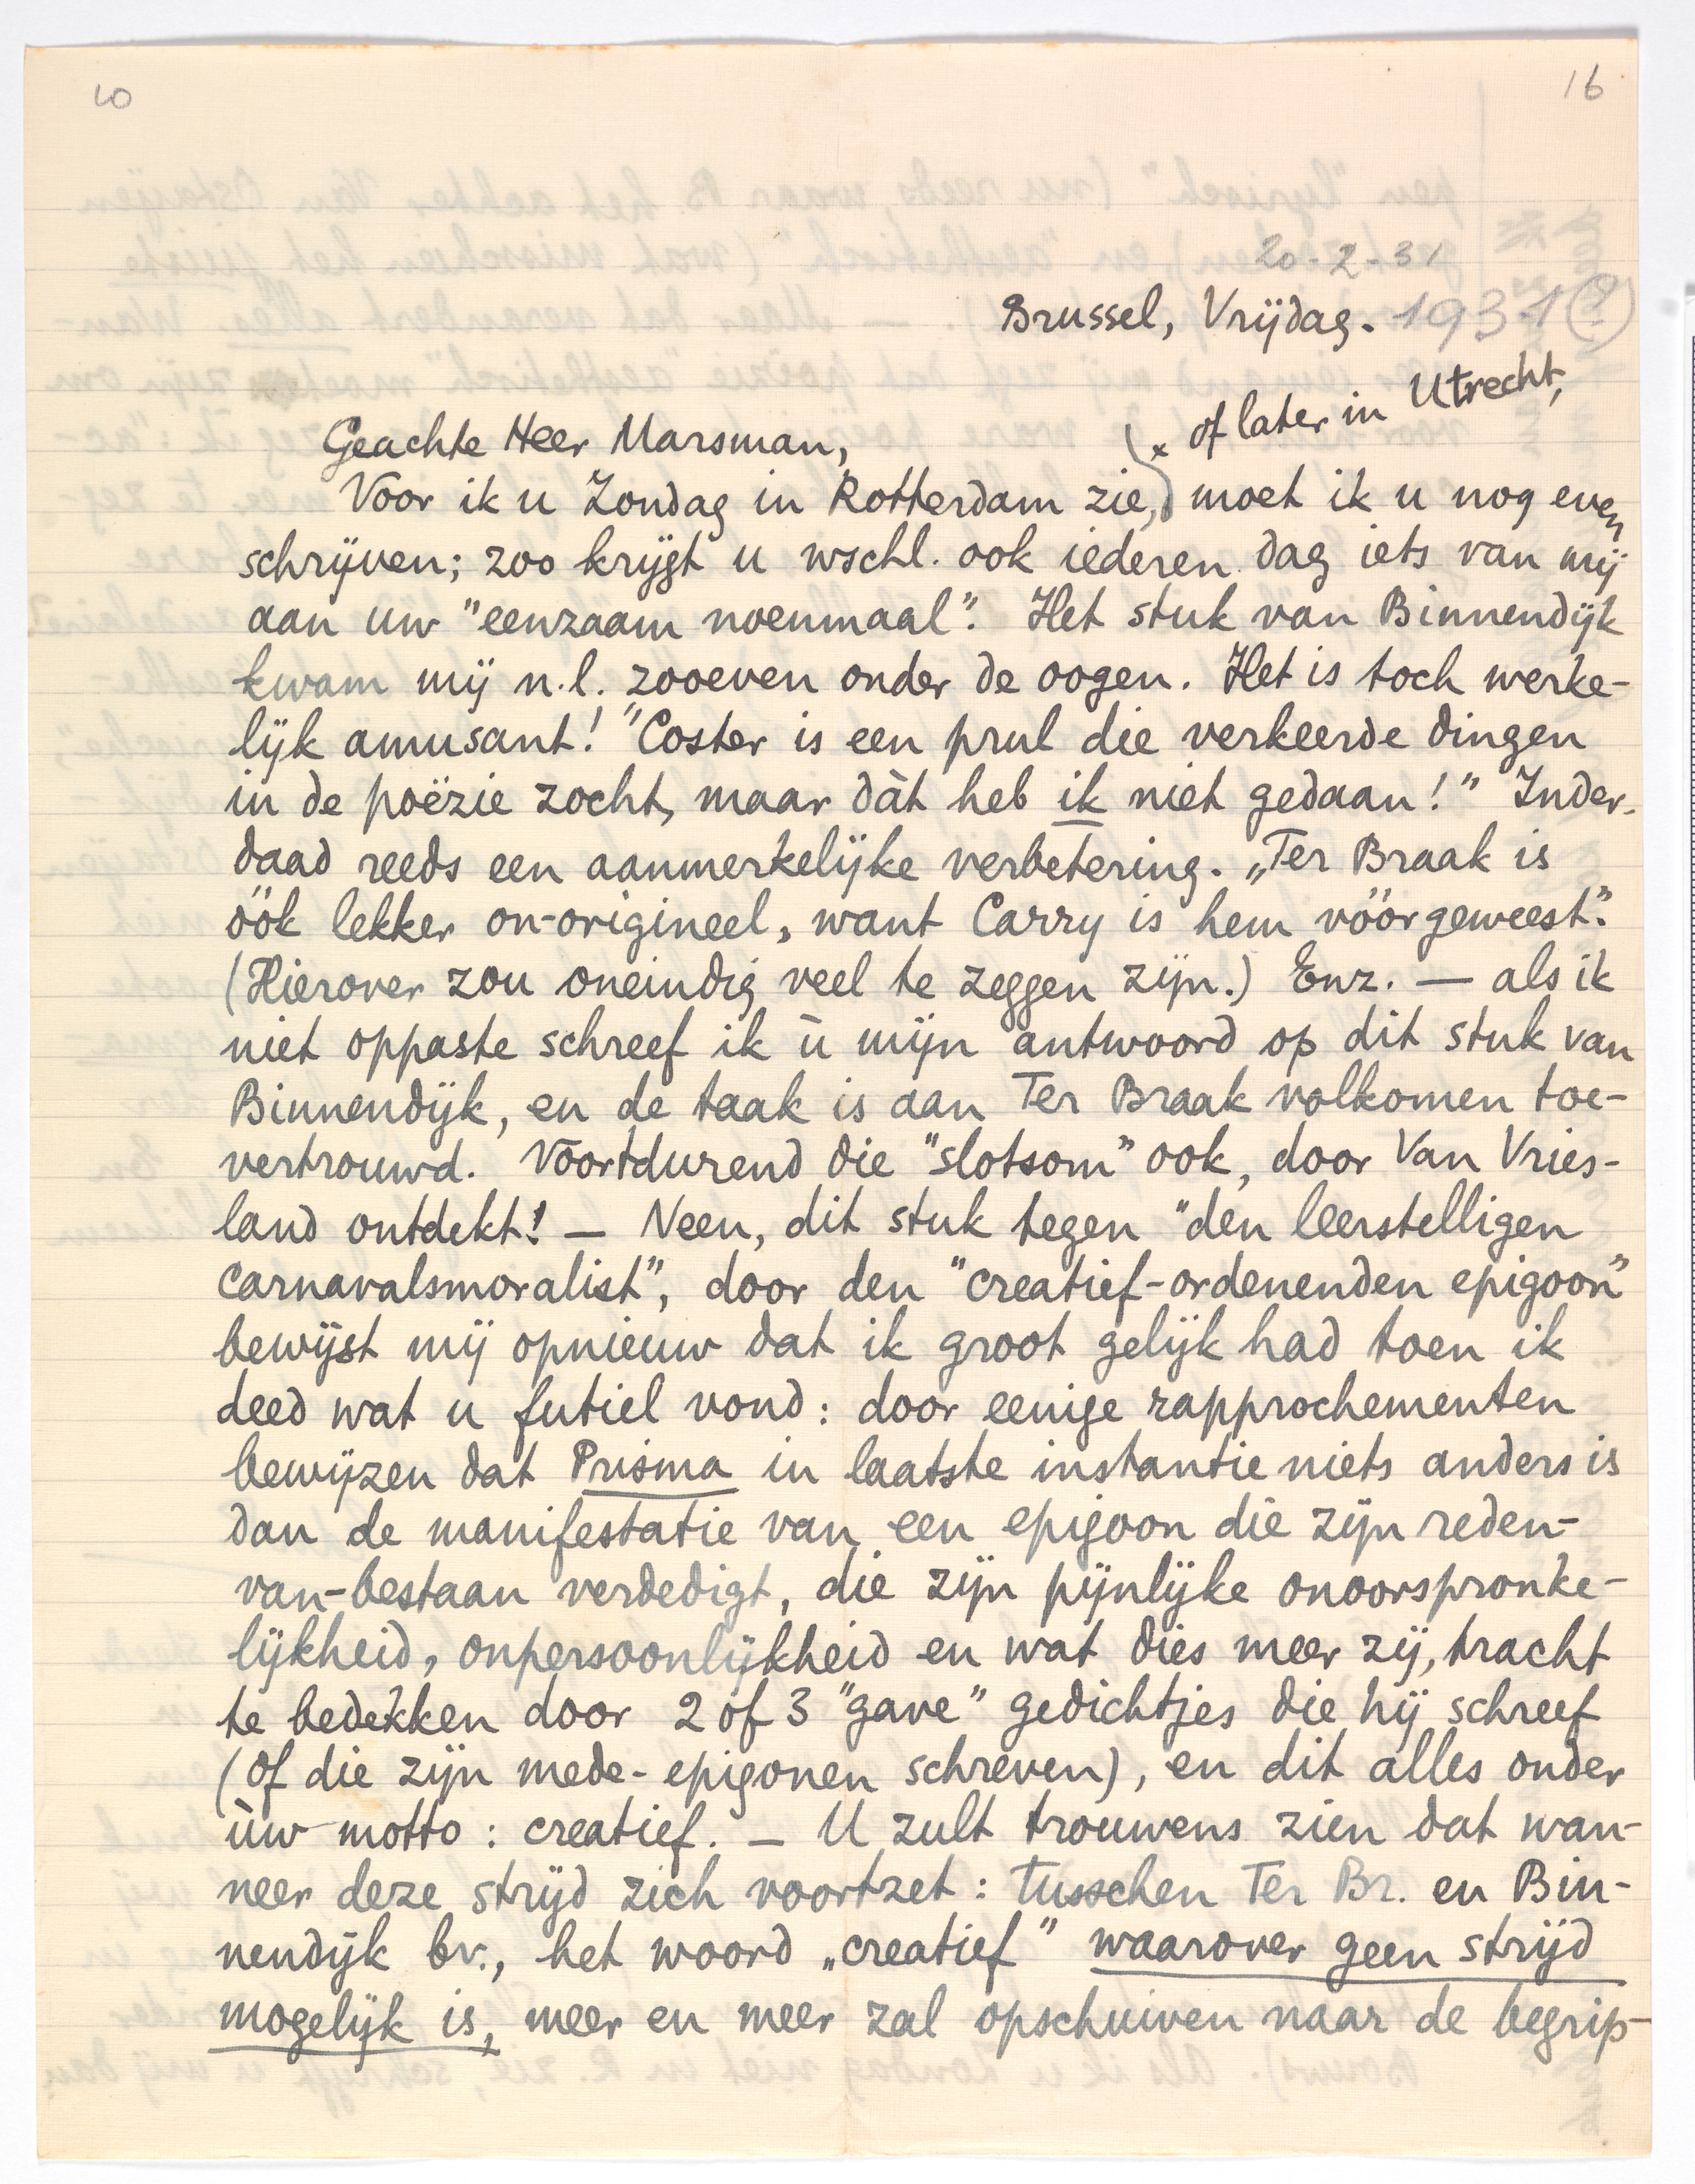 10
16
20-2-31
Brussel, Vrijdag. 1931(?)
Geachte Heer Marsman,
x of later in Utrecht,
Voor ik u Zondag in Rotterdam zie, moet ik u nog even
schrijven; zoo krijgt u wschl. ook iederen dag iets van mij
aan uw "eenzaam noenmaal". Het stuk van Binnendijk
kwam mij n.l. zooeven onder de oogen. Het is toch werke-
lijk amusant! "Coster is een prul die verkeerde dingen
in de poëzie zocht, maar dàt heb ik niet gedaan!" Inder-
daad reeds een aanmerkelijke verbetering. „Ter Braak is
óók lekker on-origineel, want Carry is hem vóórgeweest".
(Hierover zou oneindig veel te zeggen zijn.) Enz. — als ik
niet oppaste schreef ik ù mijn antwoord op dit stuk van
Binnendijk, en de taak is aan Ter Braak volkomen toe-
vertrouwd. Voortdurend die "slotsom" ook, door Van Vries-
land ontdekt! — Neen, dit stuk tegen "den leerstelligen
carnavalsmoralist", door den "creatief-ordenenden epigoon"
bewijst mij opnieuw dat ik groot gelijk had toen ik
deed wat u futiel vond: door eenige rapprochementen
bewijzen dat Prisma in laatste instantie niets anders is
dan de manifestatie van een epigoon die zijn reden-
van-bestaan verdedigt, die zijn pijnlijke onoorspronke-
lijkheid, onpersoonlijkheid en wat dies meer zij, tracht
te bedekken door 2 of 3 "gave" gedichtjes die hij schreef
(of die zijn mede-epigonen schreven), en dit alles onder
ùw motto: creatief. — U zult trouwens zien dat wan-
neer deze strijd zich voortzet: tusschen Ter Br. en Bin-
nendijk bv., het woord „creatief" waarover geen strijd
mogelijk is, meer en meer zal opschuiven naar de begrip-